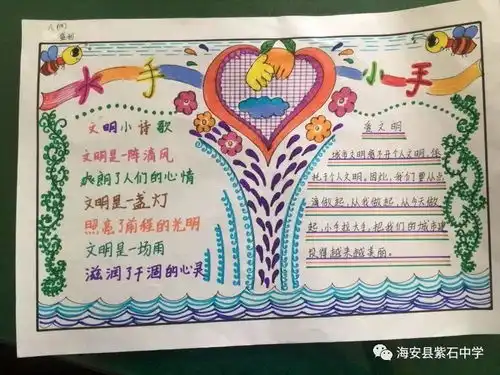 八(四)
大手
小手
文明小诗歌
文明是一阵清风
爽朗了人们的心情
文明是一盏灯
照亮了前程的光明
文明是一场雨
滋润了干涸的心灵
文明
城市文明离不开个人文明，依
托于个人文明。因此，我们要从点
滴做起，从我做起，从今天做
起，小手拉大手，把我们的城市建
设得越来越美丽。
海安县紫石中学